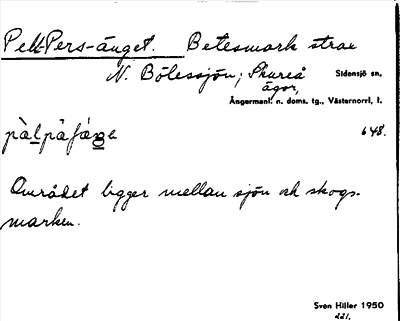 Pell-Pers-änget. Betesmark strax
N. Bölessjön; Skureå
ägor,
Sidensjö sn,
Ångermanl. n. doms. tg., Västernorrl. l.
648.
Området ligger mellan sjön och skogs-
marken.
Sven Hiller 1950
221.